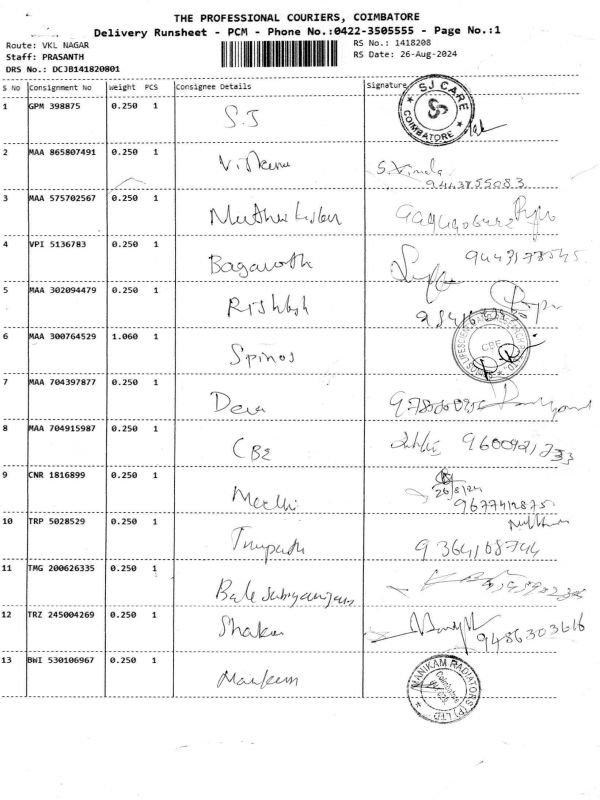 THE PROFESSIONAL COURIERS, COIMBATORE
Delivery Runsheet - PCM - Phone No.:0422-3505555 - Page No.:1
Route: VKL NAGAR
RS No.: 1418208
Staff: PRASANTH
RS Date: 26-Aug-2024
DRS No.: DCJB141820801
S No Consignment No Weight PCS Consignee Details Signature
1 GPM 398875 0.250 1 S.J
SJ CARE
COIMBATORE
2 MAA 865807491 0.250 1 S. Vimala
9443755083
3 MAA 575702567 0.250 1
4 VPI 5136783 0.250 1 Bagavoth 9443178545
5 MAA 302094479 0.250 1 Rishbsh
6 MAA 300764529 1.060 1 Spinos
CBE
7 MAA 704397877 0.250 1 Deva
8 MAA 704915987 0.250 1 CBE 9600921233
9 CNR 1816899 0.250 1 Medhi
26/8/24
9677412875
10 TRP 5028529 0.250 1 9364108744
11 TMG 200626335 0.250 1
12 TRZ 245004269 0.250 1 9486303616
13 BWI 530106967 0.250 1
MANIKAM RADIATORS (P) LTD
Coimbatore